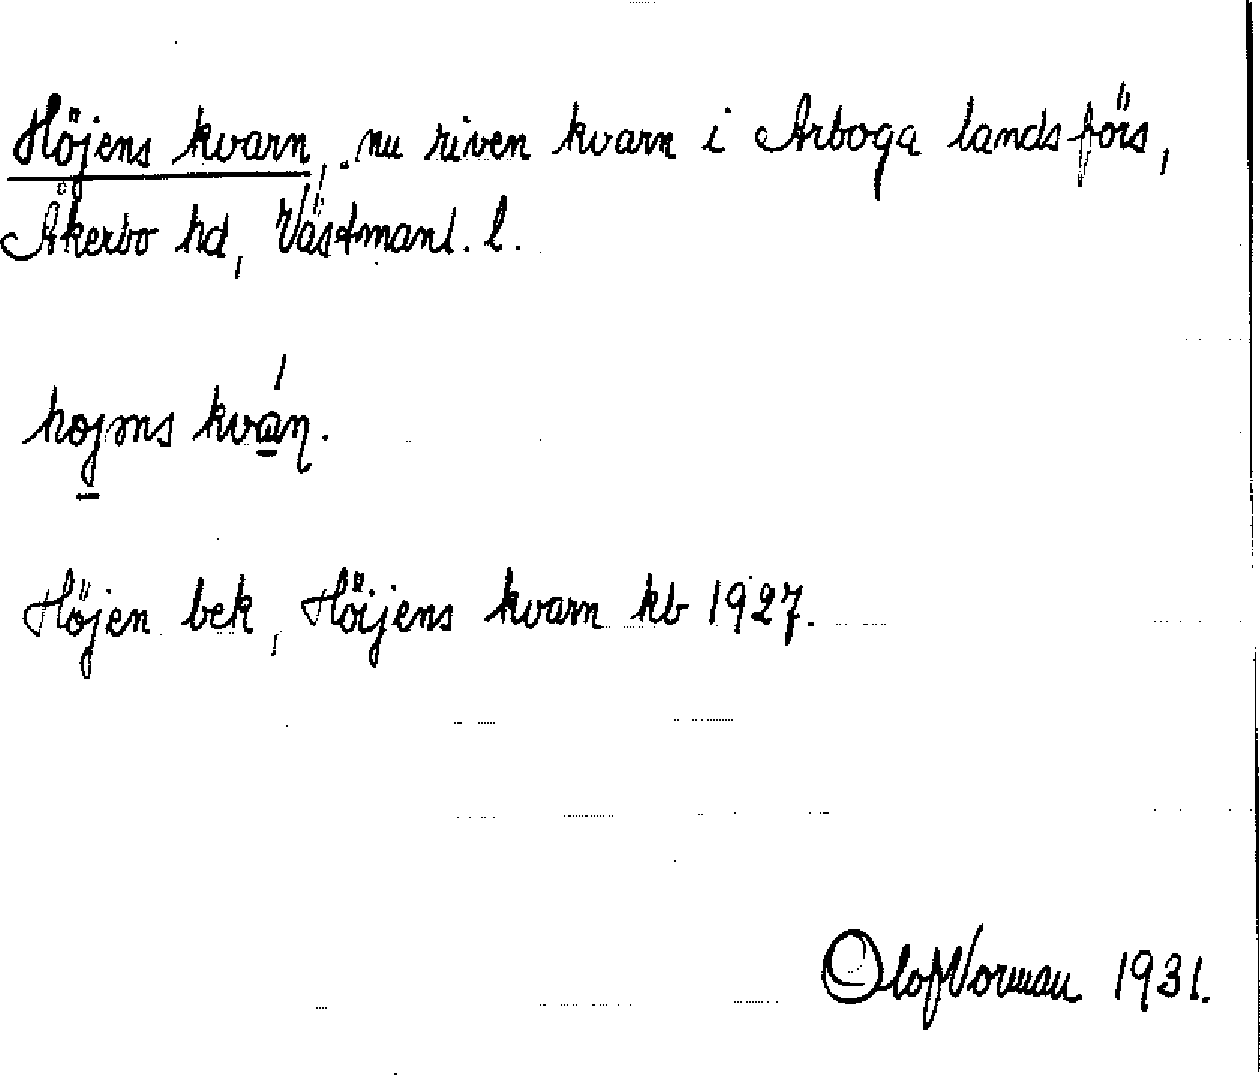 Höjens kvarn, nu riven kvarn i Arboga landsförs,
Åkerbo hd, Västmanl. l.
hojəns kván.
Höjen bek, Höijens kvarn kb 1927.
Olof Vorman 1931.